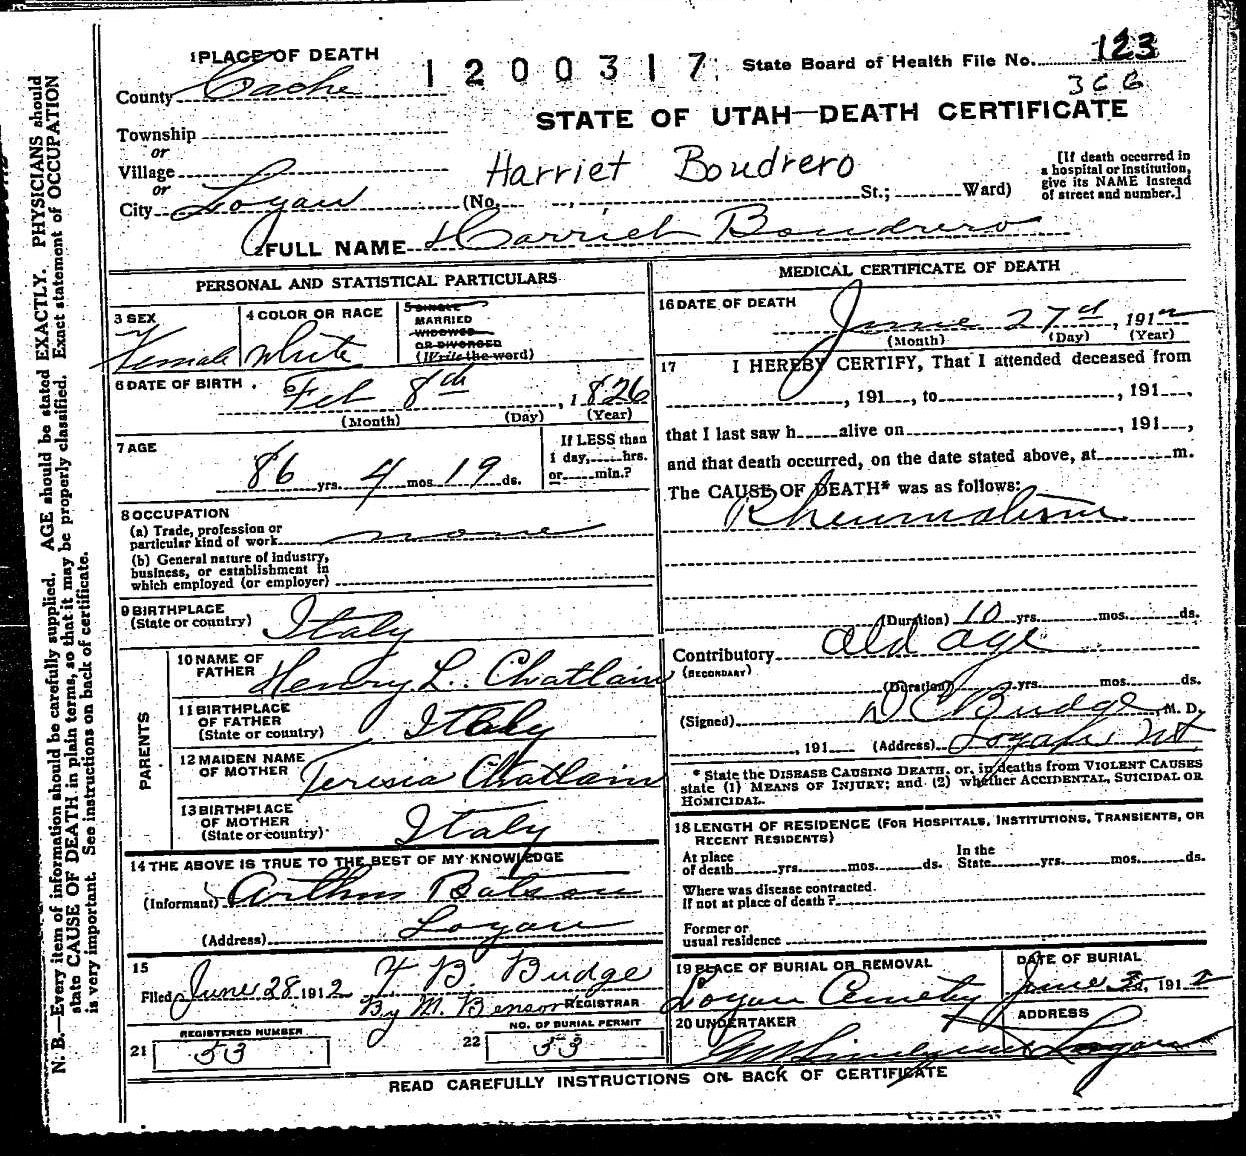 1 PLACE OF DEATH
1200317
State Board of Health File No. 123
366
County Cache
STATE OF UTAH—DEATH CERTIFICATE
Township
or
Village
or
City Logan
Harriet Boudrero
(No. St.; Ward)
[If death occurred in
a hospital or institution,
give its NAME instead
of street and number.]
2 FULL NAME Harriet Boudrero
PERSONAL AND STATISTICAL PARTICULARS
3 SEX
Female
4 COLOR OR RACE
White
5 SINGLE
MARRIED
WIDOWED
OR DIVORCED
(Write the word)
6 DATE OF BIRTH
Feb 8th, 1826
(Month) (Day) (Year)
7 AGE
86 yrs. 4 mos 19 ds.
If LESS than
1 day, hrs.
or min.?
8 OCCUPATION
(a) Trade, profession or
particular kind of work none
(b) General nature of industry,
business, or establishment in
which employed (or employer)
9 BIRTHPLACE
(State or country) Italy
PARENTS
10 NAME OF
FATHER Henry L. Chatlain
11 BIRTHPLACE
OF FATHER
(State or country) Italy
12 MAIDEN NAME
OF MOTHER Teresia Chatlain
13 BIRTHPLACE
OF MOTHER
(State or country) Italy
14 THE ABOVE IS TRUE TO THE BEST OF MY KNOWLEDGE
(Informant) Arthur Batson
(Address) Logan
15
Filed June 28 1912 F B. Budge
By M. Benson REGISTRAR
REGISTERED NUMBER
21 53
NO. OF BURIAL PERMIT
22 53
MEDICAL CERTIFICATE OF DEATH
16 DATE OF DEATH
June 27th, 1912
(Month) (Day) (Year)
17 I HEREBY CERTIFY, That I attended deceased from
, 191 , to , 191 ,
that I last saw h alive on , 191 ,
and that death occurred, on the date stated above, at m.
The CAUSE OF DEATH* was as follows:
Rheumatism
(Duration) 10 yrs. mos. ds.
Contributory old age
(SECONDARY)
(Duration) yrs. mos. ds.
(Signed) D C Budge, M. D.
, 191 (Address) Logan Ut
* State the DISEASE CAUSING DEATH, or, in deaths from VIOLENT CAUSES
state (1) MEANS OF INJURY; and (2) whether ACCIDENTAL, SUICIDAL OR
HOMICIDAL.
18 LENGTH OF RESIDENCE (FOR HOSPITALS, INSTITUTIONS, TRANSIENTS, OR
RECENT RESIDENTS)
At place
of death yrs. mos. ds.
In the
State yrs. mos. ds.
Where was disease contracted.
If not at place of death?
Former or
usual residence
19 PLACE OF BURIAL OR REMOVAL
Logan Cemetry
DATE OF BURIAL
June 30, 1912
20 UNDERTAKER
ADDRESS
Logan
READ CAREFULLY INSTRUCTIONS ON BACK OF CERTIFICATE
N. B.—Every item of information should be carefully supplied. AGE should be stated EXACTLY. PHYSICIANS should
state CAUSE OF DEATH in plain terms, so that it may be properly classified. Exact statement of OCCUPATION
is very important. See instructions on back of certificate.